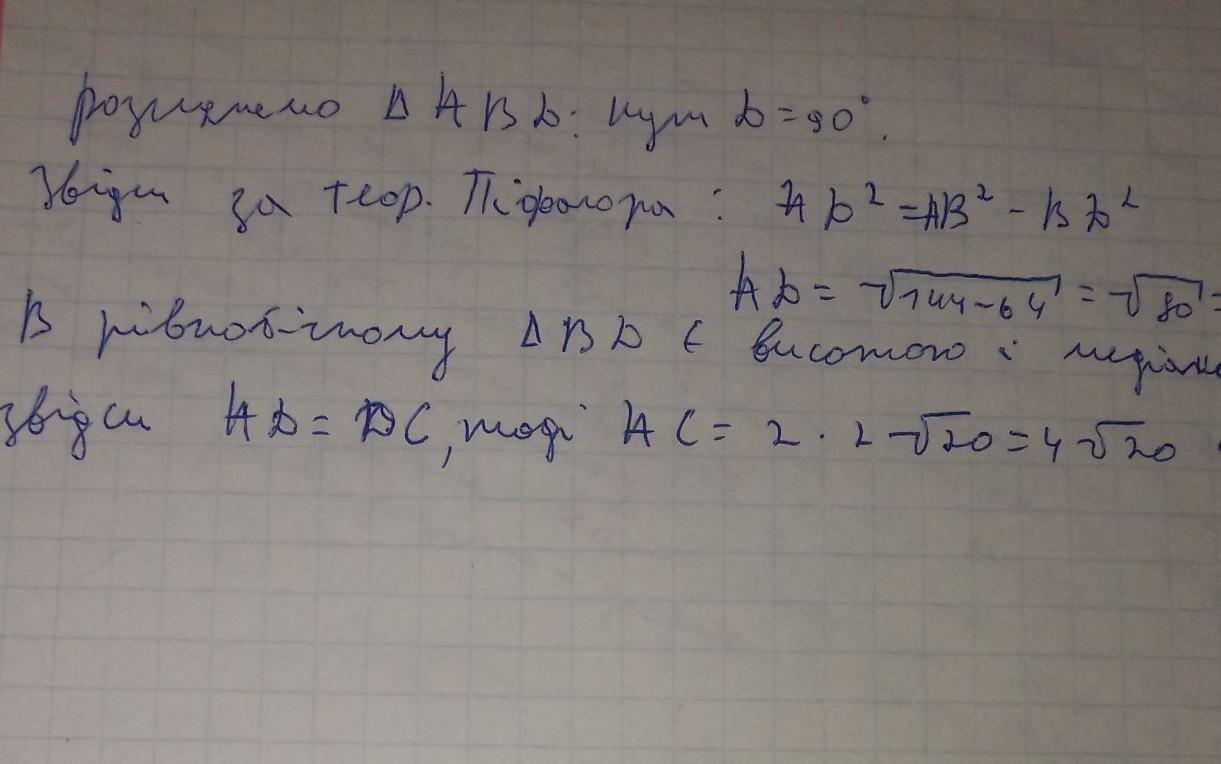 розглянемо Δ ABD: кут D=90°.
Звідси за теор. Піфагора: AD²=AB²-BD²
AD = √144-64 = √80 =
В рівнобічному Δ BD є висотою і медіано
звідси AD = DC, тоді AC = 2 · 2√20 = 4√20